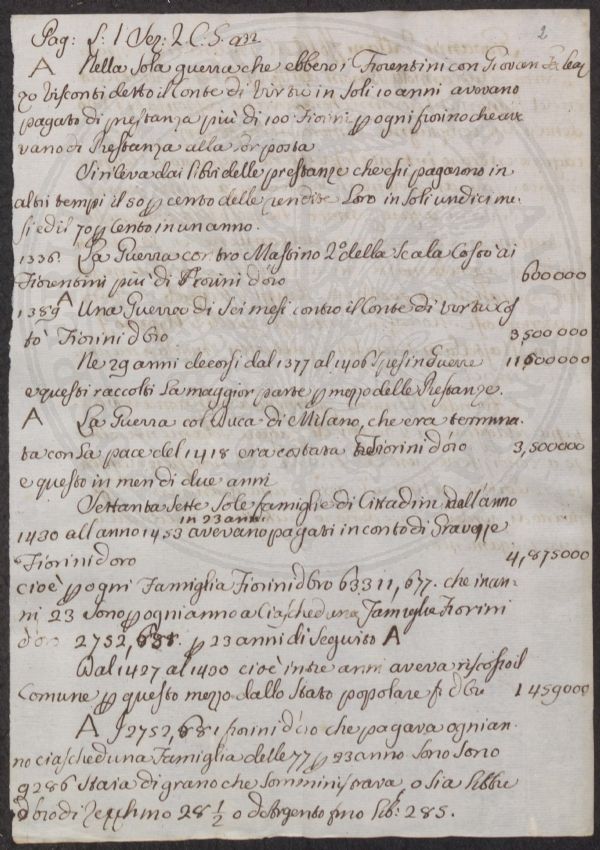 Pag: S: 1 Sez: 2 C. S. 2
A Nella sola guerra che ebbero i Fiorentini con Giovan Galeaz
zo Visconti detto il Conte di Virtù in soli 10 anni avevano
pagato di prestanza più di 100 Fiorini p ogni fiorino che ave
vano di Prestanza alla lor posta
Si rileva dai libri delle prestanze che essi pagarono in
altri tempi il 50 p cento delle rendite loro in soli undici me
si ed il 70 p Cento in un anno.
1336. La Guerra contro Mastino 2º della Scala Costò ai
Fiorentini più di Fiorini d'oro 600000
1389 A Una Guerra di Sei mesi contro il Conte di Virtù Cos
tò Fiorini d'Oro 3,500000
Ne 29 anni decorsi dal 1377 al 1406 spesi in Guerre 11600000
e questi raccolti la maggior parte p mezzo delle Prestanze.
A La Guerra col Duca di Milano, che era termina
ta con la pace del 1418 era costata Fiorini d'oro 3,500000
e questo in men di due anni
Settanta Sette Sole famiglie di Cittadini dall'anno
1430 all'anno 1453 in 23 anni avevano pagati in conto di Gravezze
Fiorini d'oro 4,875000
cioè p ogni Famiglia Fiorini d'Oro 63311,677. che in an
ni 23 sono p ogni anno a Ciascheduna Famiglia Fiorini
d'oro 2752,681. p 23 anni di Seguito A
Dal 1427 al 1430 cioè in tre anni aveva riscosso il
Comune p questo mezzo dallo Stato popolare fi d'Oro 1459000
A I 2752,681 fiorini d'oro che pagava ogni an
no ciascheduna Famiglia delle 77 p 23 anno sono
9286 Staia di grano che somministrava, o sia libbre
d'oro di Zecchino 28 1/2 o d'Argento fino lib: 285.